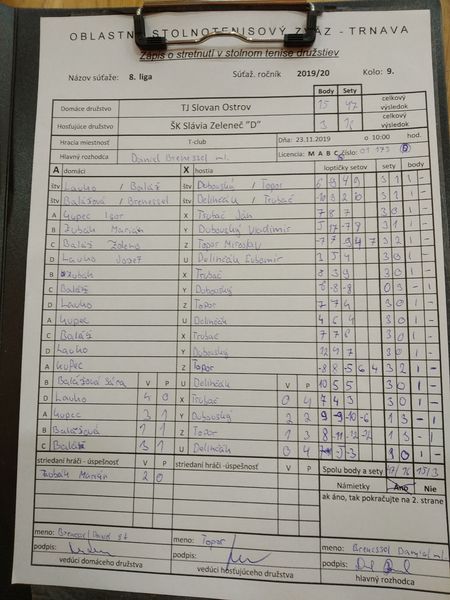 OBLASTNÝ STOLNOTENISOVÝ ZVÄZ - TRNAVA
Zápis o stretnutí v stolnom tenise družstiev
Názov súťaže: 8. liga Súťaž. ročník 2019/20 Kolo: 9.
Body Sety
Domáce družstvo TJ Slovan Ostrov 15 47 celkový výsledok
Hosťujúce družstvo ŠK Slávia Zeleneč "D" 3 16 celkový výsledok
Hracia miestnosť T-club Dňa: 23.11.2019 o 10:00 hod.
Hlavný rozhodca Daniel Brenessel ml. Licencia: M A B C číslo:
A domáci X hostia loptičky setov sety body
štv Lavko / Baláž štv Dubovský / Topor 6 9 4 9 3 1 1 -
štv Balážová / Brenessel štv Delinčák / Trubač
A Kupec Igor X Trubač Ján 7 8 7 3 0 1 -
B Zubák Marián Y Dubovský Vladimír 3 1 1 -
C Baláž Z Topor Miroslav -7 7 9 4 7 3 2 1 -
D Lavko Jozef U Delinčák Ľubomír 3 5 4 3 0 1 -
B Zubák X Trubač 3 3 9 3 0 1 -
C Baláž Y Dubovský -6 -8 -8 0 3 - 1
D Lavko Z Topor 7 7 4 3 0 1 -
A Kupec U Delinčák 4 6 4 3 0 1 -
C Baláž X Trubač 7 7 6 3 0 1 -
D Lavko Y Dubovský 12 9 7 3 0 1 -
A Kupec Z Topor -8 8 -5 6 4 3 2 1 -
B Balážová Sára V P U Delinčák V P 10 5 5 3 0 1 -
D Lavko 4 0 X Trubač 0 4 7 4 3 3 0 1 -
A Kupec 3 1 Y Dubovský 2 2 9 -9 -10 -6 1 3 - 1
B Balážová 1 1 Z Topor 1 3 8 -11 -12 -12 1 3 - 1
C Baláž 3 1 U Delinčák 0 4 3 0 1 -
striedaní hráči - úspešnosť V P striedaní hráči - úspešnosť V P Spolu body a sety 47/16 15/3
Zubák Marián 2 0 Námietky Áno Nie
ak áno, tak pokračujte na 2. strane
meno: Brenessel meno: Topor meno: Brenessel Daniel ml.
podpis: podpis: podpis:
vedúci domáceho družstva vedúci hosťujúceho družstva hlavný rozhodca